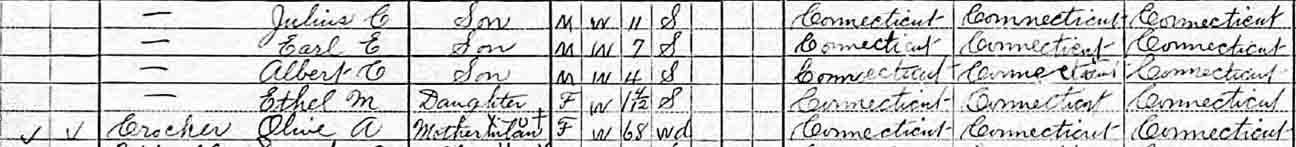 — Julius C Son M W 11 S Connecticut Connecticut Connecticut
— Earl E Son M W 7 S Connecticut Connecticut Connecticut
— Albert C Son M W 4 S Connecticut Connecticut Connecticut
— Ethel M Daughter F W 1 4/12 S Connecticut Connecticut Connecticut
Crocker Olive A Mother in law F W 68 Wd Connecticut Connecticut Connecticut